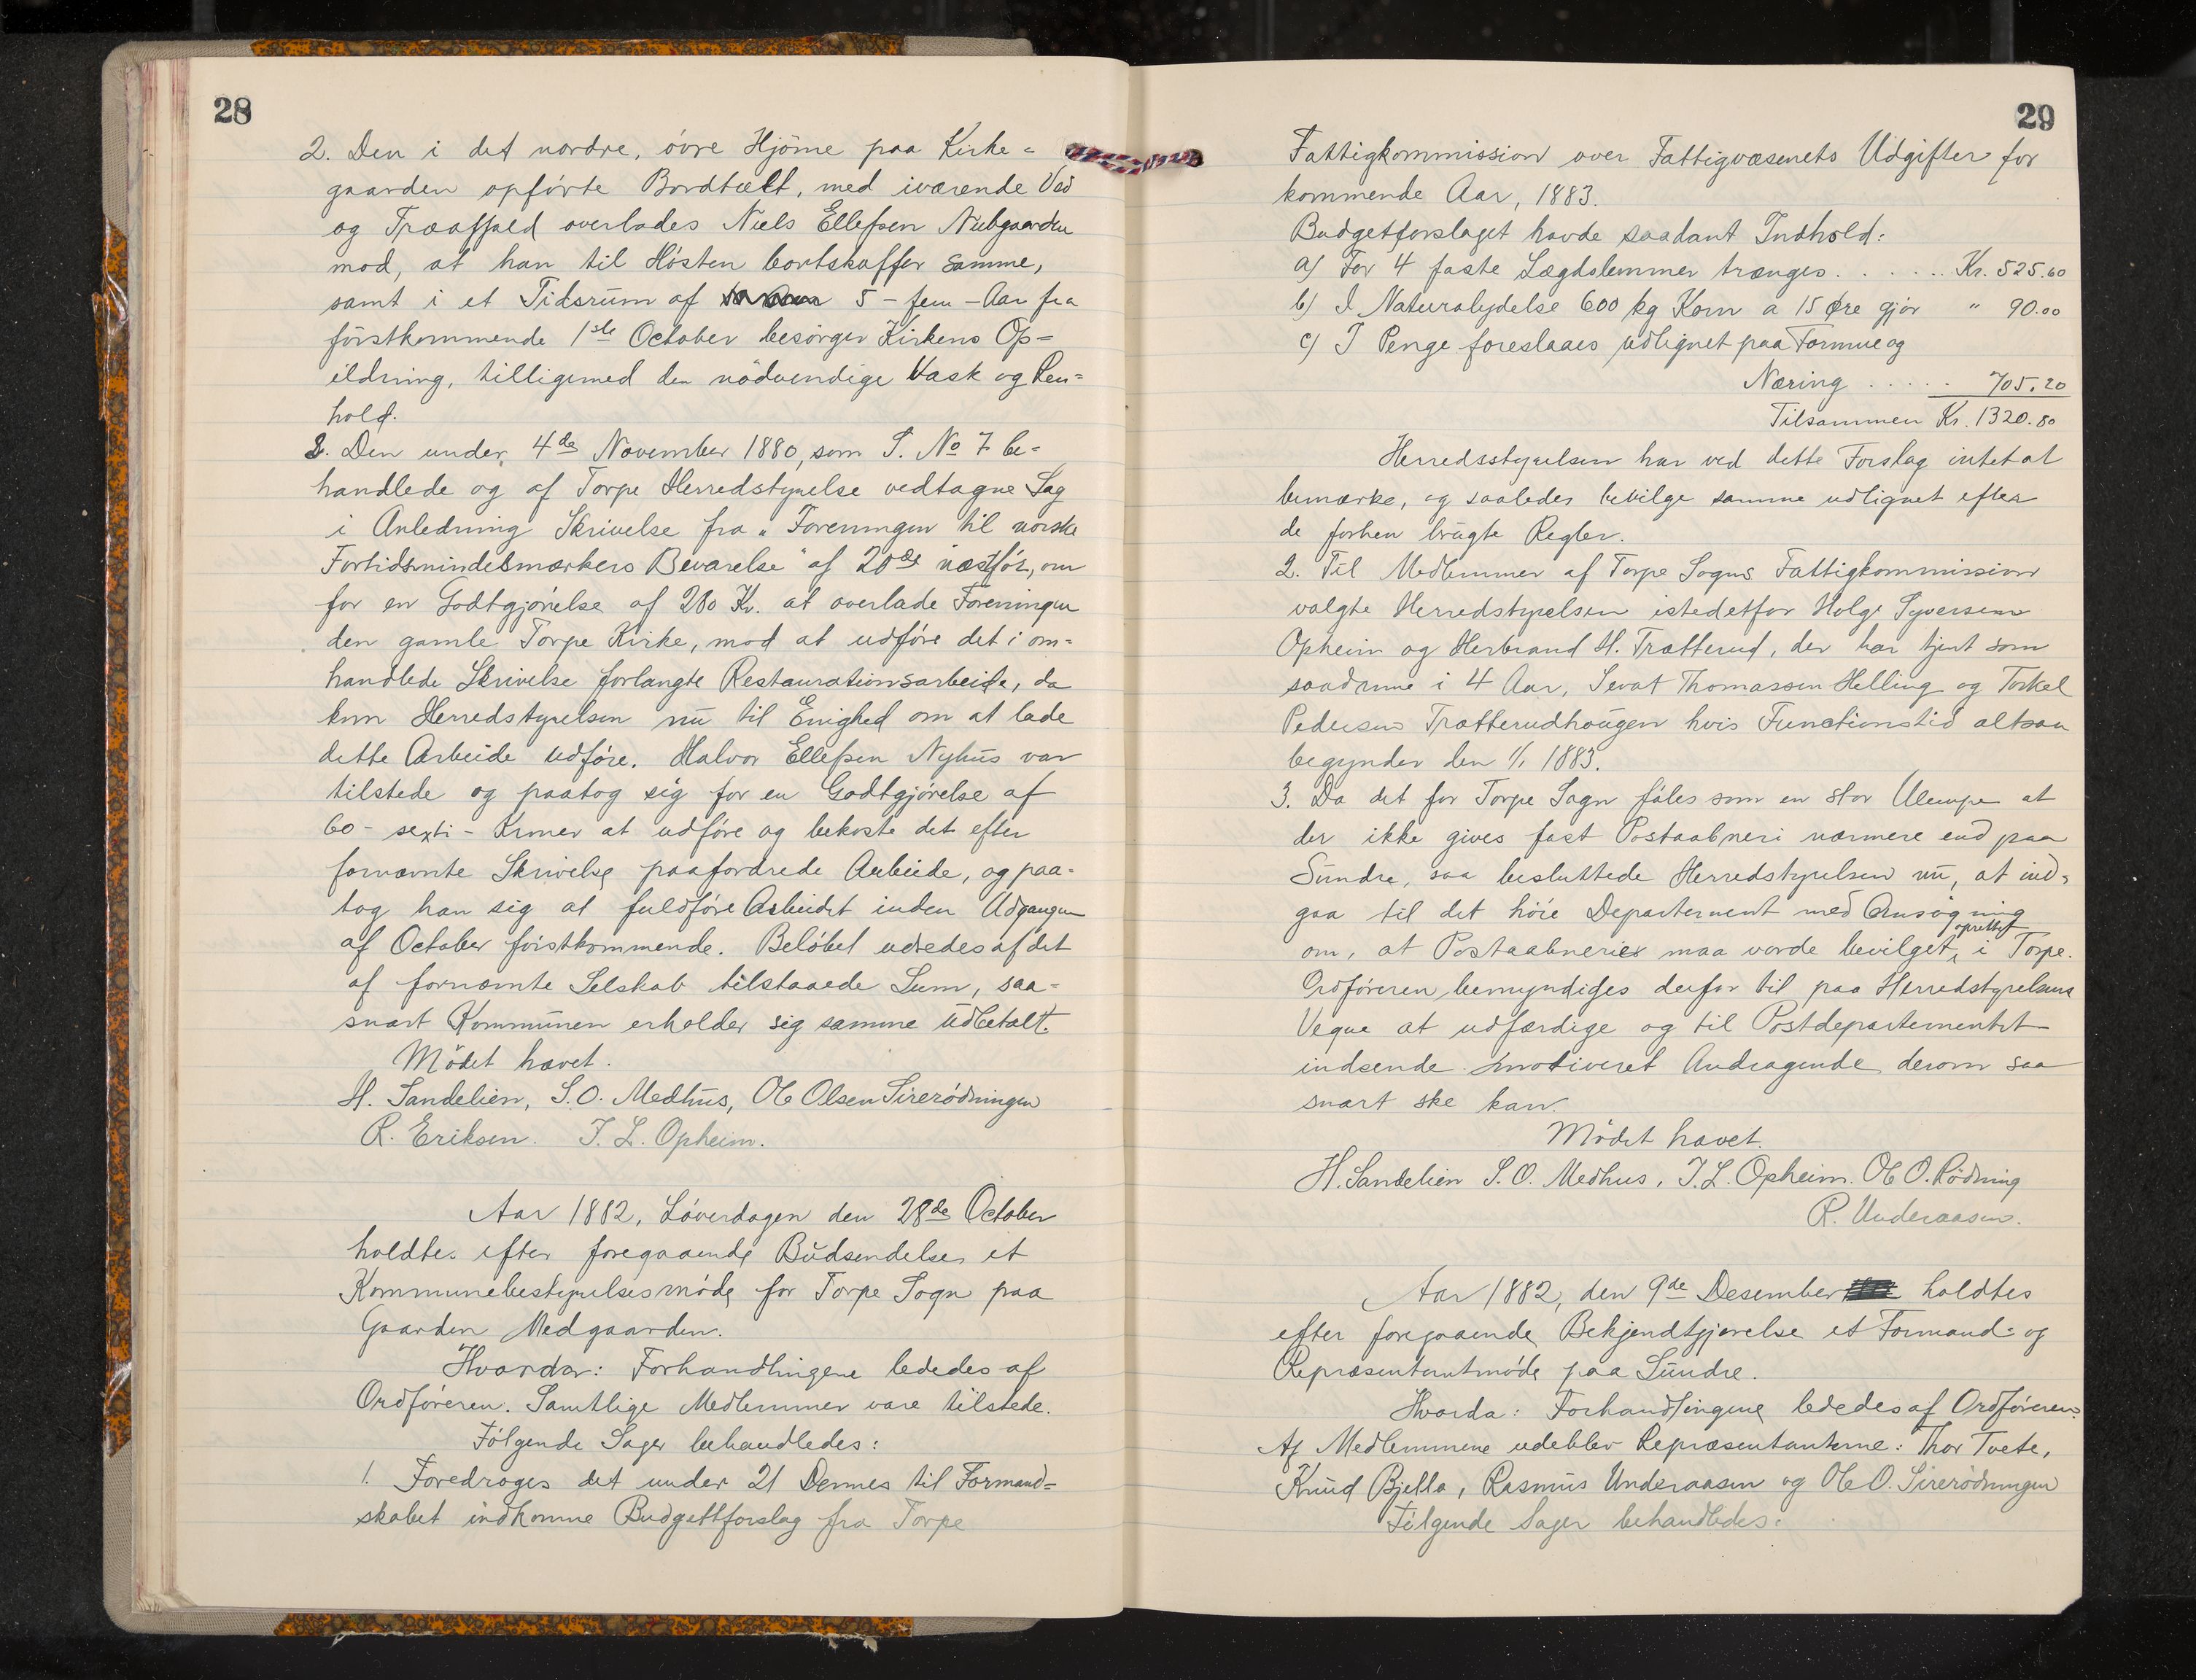 28
2. Den i det nordre, øvre Hjörne paa Kirke=
gaarden opførte Bordtælt, med iværende Ved
og Træaffald overlades Niels Ellefsen Nubgaarden
mod, at han til Høsten bortskaffer samme,
samt i et Tidsrum af 5 - fem - Aar fra
førstkommende 1ste October besørger Kirkens Op=
ildning, tilligemed den nödvendige Vask og Ren=
hold.
3. Den under 4de November 1880, som S. No 7 be=
handlede og af Torpe Herredstyrelse vedtagne Sag
i Anledning Skrivelse fra „Foreningen til norske
Fortidsmindesmærkers Bevarelse" af 20de næstför, om
for en Godtgjørelse af 280 Kr. at overlade Foreningen
den gamle Torpe Kirke, mod at udføre det i om=
handlede Skrivelse forlangte Restaurationsarbeide, da
kom Herredstyrelsen nu til Enighed om at lade
dette Arbeide udføre. Halvor Ellefsen Nyhus var
tilstede og paatog sig for en Godtgjørelse af
60 - sexti - Kroner at udføre og bekoste det efter
fornævnte Skrivelse paafordrede Arbeide, og paa=
tog han sig at fuldføre Arbeidet inden Udgangen
af October førstkommende. Beløbet udredes af det
af fornævnte Selskab tilstaaede Sum, saa=
snart Kommunen erholder sig samme udbetalt.
Mödet hævet.
H. Sandelien, S. O. Medhus, Ole Olsen Sirerødningen
R. Eriksen. T. L. Opheim.
Aar 1882, Løverdagen den 28de October
holdtes efter foregaaende Budsendelse et
Kommunebestyrelsesmøde for Torpe Sogn paa
Gaarden Medgaarden.
Hvorder: Forhandlingene lededes af
Ordføreren. Samtlige Medlemmer vare tilstede.
Følgende Sager behandledes:
1. Foredroges det under 21 Dennes til Formand=
skabet indkomne Budgettforslag fra Torpe
29
Fattigkommission over Fattigvæsenets Udgifter for
kommende Aar, 1883.
Budgetforslaget havde saadant Indhold:
a) For 4 faste Lægdslemmer trænges . . . . . . Kr. 525.60
b) I Naturalydelse 600 kg Korn a 15 Øre gjør " 90.00
c) I Penge foreslaaes udlignet paa Formue og
Næring . . . . . 705.20
Tilsammen Kr. 1320.80
Herredsstyrelsen har ved dette Forslag intet at
bemærke, og saaledes bevilge samme udlignet efter
de forhen brugte Regler.
2. Til Medlemmer af Torpe Sogns Fattigkommission
valgte Herredstyrelsen istedetfor Holge Syversen
Opheim og Herbrand H. Trætterud, der har tjent som
saadanne i 4 Aar, Sevat Thomassen Helling og Torkel
Pedersen Trætterudhougen hvis Functionstid altsaa
begynder den 1/1 1883.
3. Da det for Torpe Sogn føles som en stor Ulempe at
der ikke gives fast Postaabneri nærmere end paa
Sundre, saa besluttede Herredstyrelsen nu, at ind=
gaa til det höie Departement med Ansøgning
om, at Postaabnerier maa vorde bevilget oprettet i Torpe.
Ordføreren bemyndiges derfor til paa Herredstyrelsens
Vegne at udfærdige og til Postdepartementet
indsende motiveret Andragende derom saa
snart ske kan.
Mødet hævet.
H. Sandelien S. O. Medhus, T. L. Opheim. Ole O. Rødning
R. Underaasen.
Aar 1882, den 9de Desember holdtes
efter foregaaende Bekjendtgjørelse et Formand- og
Repræsentantmøde paa Sundre.
Hvorda: Forhandlingene lededes af Ordføreren.
Af Medlemmene udeblev Repræsentanterne: Thor Tvete,
Knud Bjella, Rasmus Underaasen og Ole O. Sirerødningen
Følgende Sager behandledes: